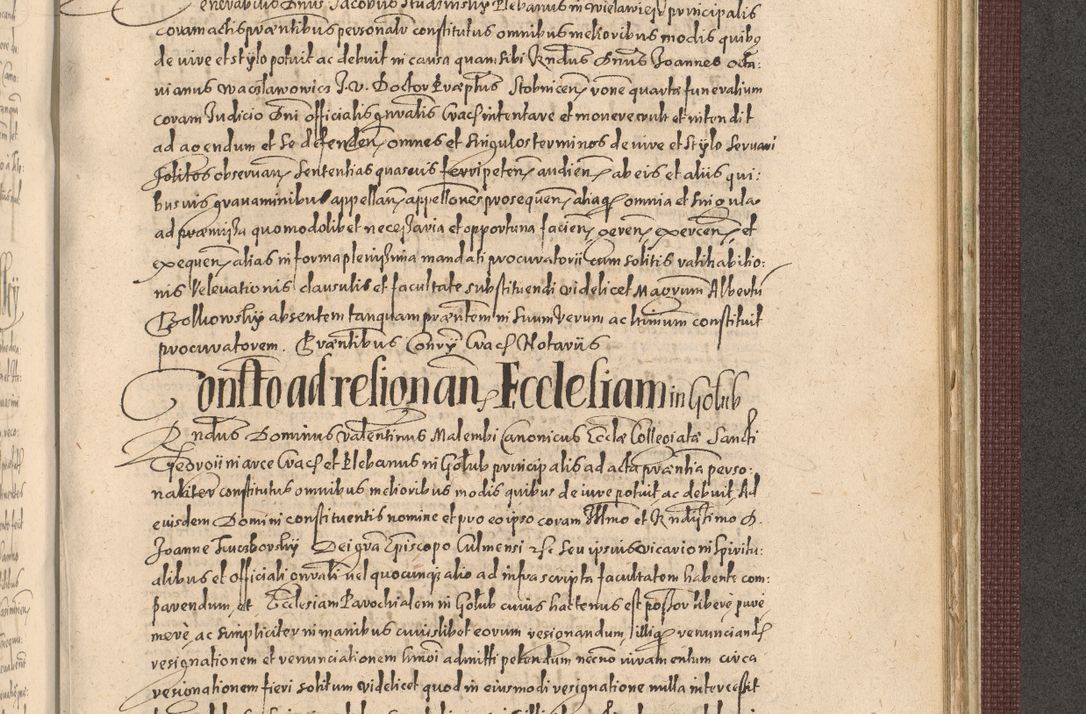 Venerabilis Dnus Jacobus Studzinsky Plebanus in Wielawieś principalis
coram actis præntibus personalr constitutus omnibus melioribus modis quibus
de iure et stylo potuit ac debuit in causa quam sibi Rndus Dnus Joannes octa:
uianus Waczlawowicz J. V. Doctor Præptus Stobnicen rone quartæ funeralium
coram Judicio Dni officialis gnralis Crac intentare et mouere vult et intendit
ad agendum et se defenden omnes et singulos terminos de iure et stylo seruari
solitos obseruan sententias quasuis ferri peten audien ab eis et aliis qui:
busuis grauaminibus appellan appellones prosequen aliaq omnia et singula
ad præmissa quomodolibet necessaria et opportuna facien geren exercen et
exequen alias in forma plenissima mandati procuratorii cum solitis ratihabitio:
nis releuationis clausulis et facultate substituendi videlicet Magrum Albertu
Golkowsky absentem tanquam præntem in suum verum ac ltimum constituit
procuratorem. Præntibus Consry Crac Notariis
Constto ad resionan Ecclesiam in Golub
Rndus Dominus Valentinus Malembi Canonicus Ecclæ Collegiatæ Sancti
Georgii in arce Crac et Plebanus in Golub principalis ad acta præntia perso:
naliter constitutus omnibus melioribus modis quibus de iure potuit ac debuit Ad
eiusdem Domini constituentis nomine et pro eo ipso coram Illmo et Rndissimo D.
Joanne Kuczborsky Dei gra Episcopo Culmensi et se seu ipsius vicario in spiritu:
alibus et officiali gnrali uel quocunq alio ad infra scripta facultatem habente com:
parendum, et Ecclesiam Parochialem in Golub cuius hactenus est possor libere pure
mere, ac simpliciter in manibus cuiuslibet eorum resignandum, illiq renunciand
resignationem et renunciationem hmoi admitti petendum necno iuramentum circa
resignationem fieri solitum videlicet quod in eiusmodi resignatione nulla intercessit